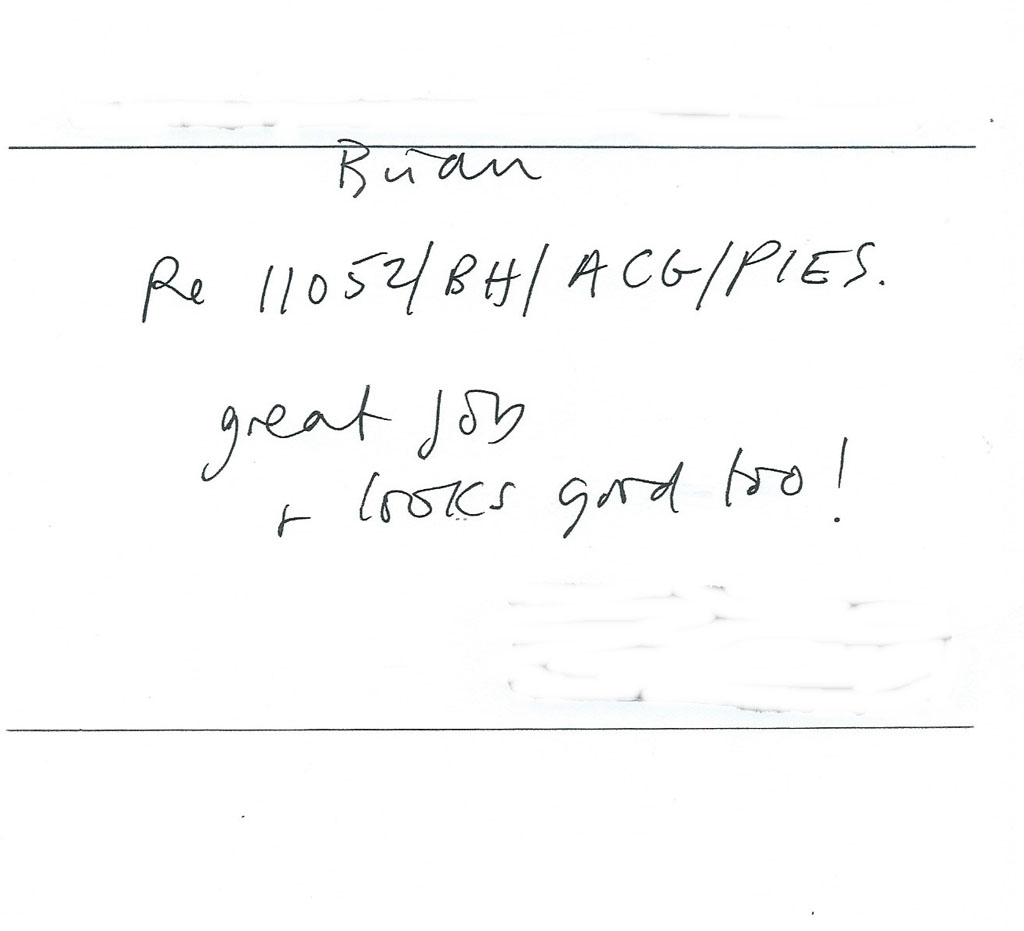 Brian
Re 11052/BH/ACG/PIES.
great job
+ looks good too!